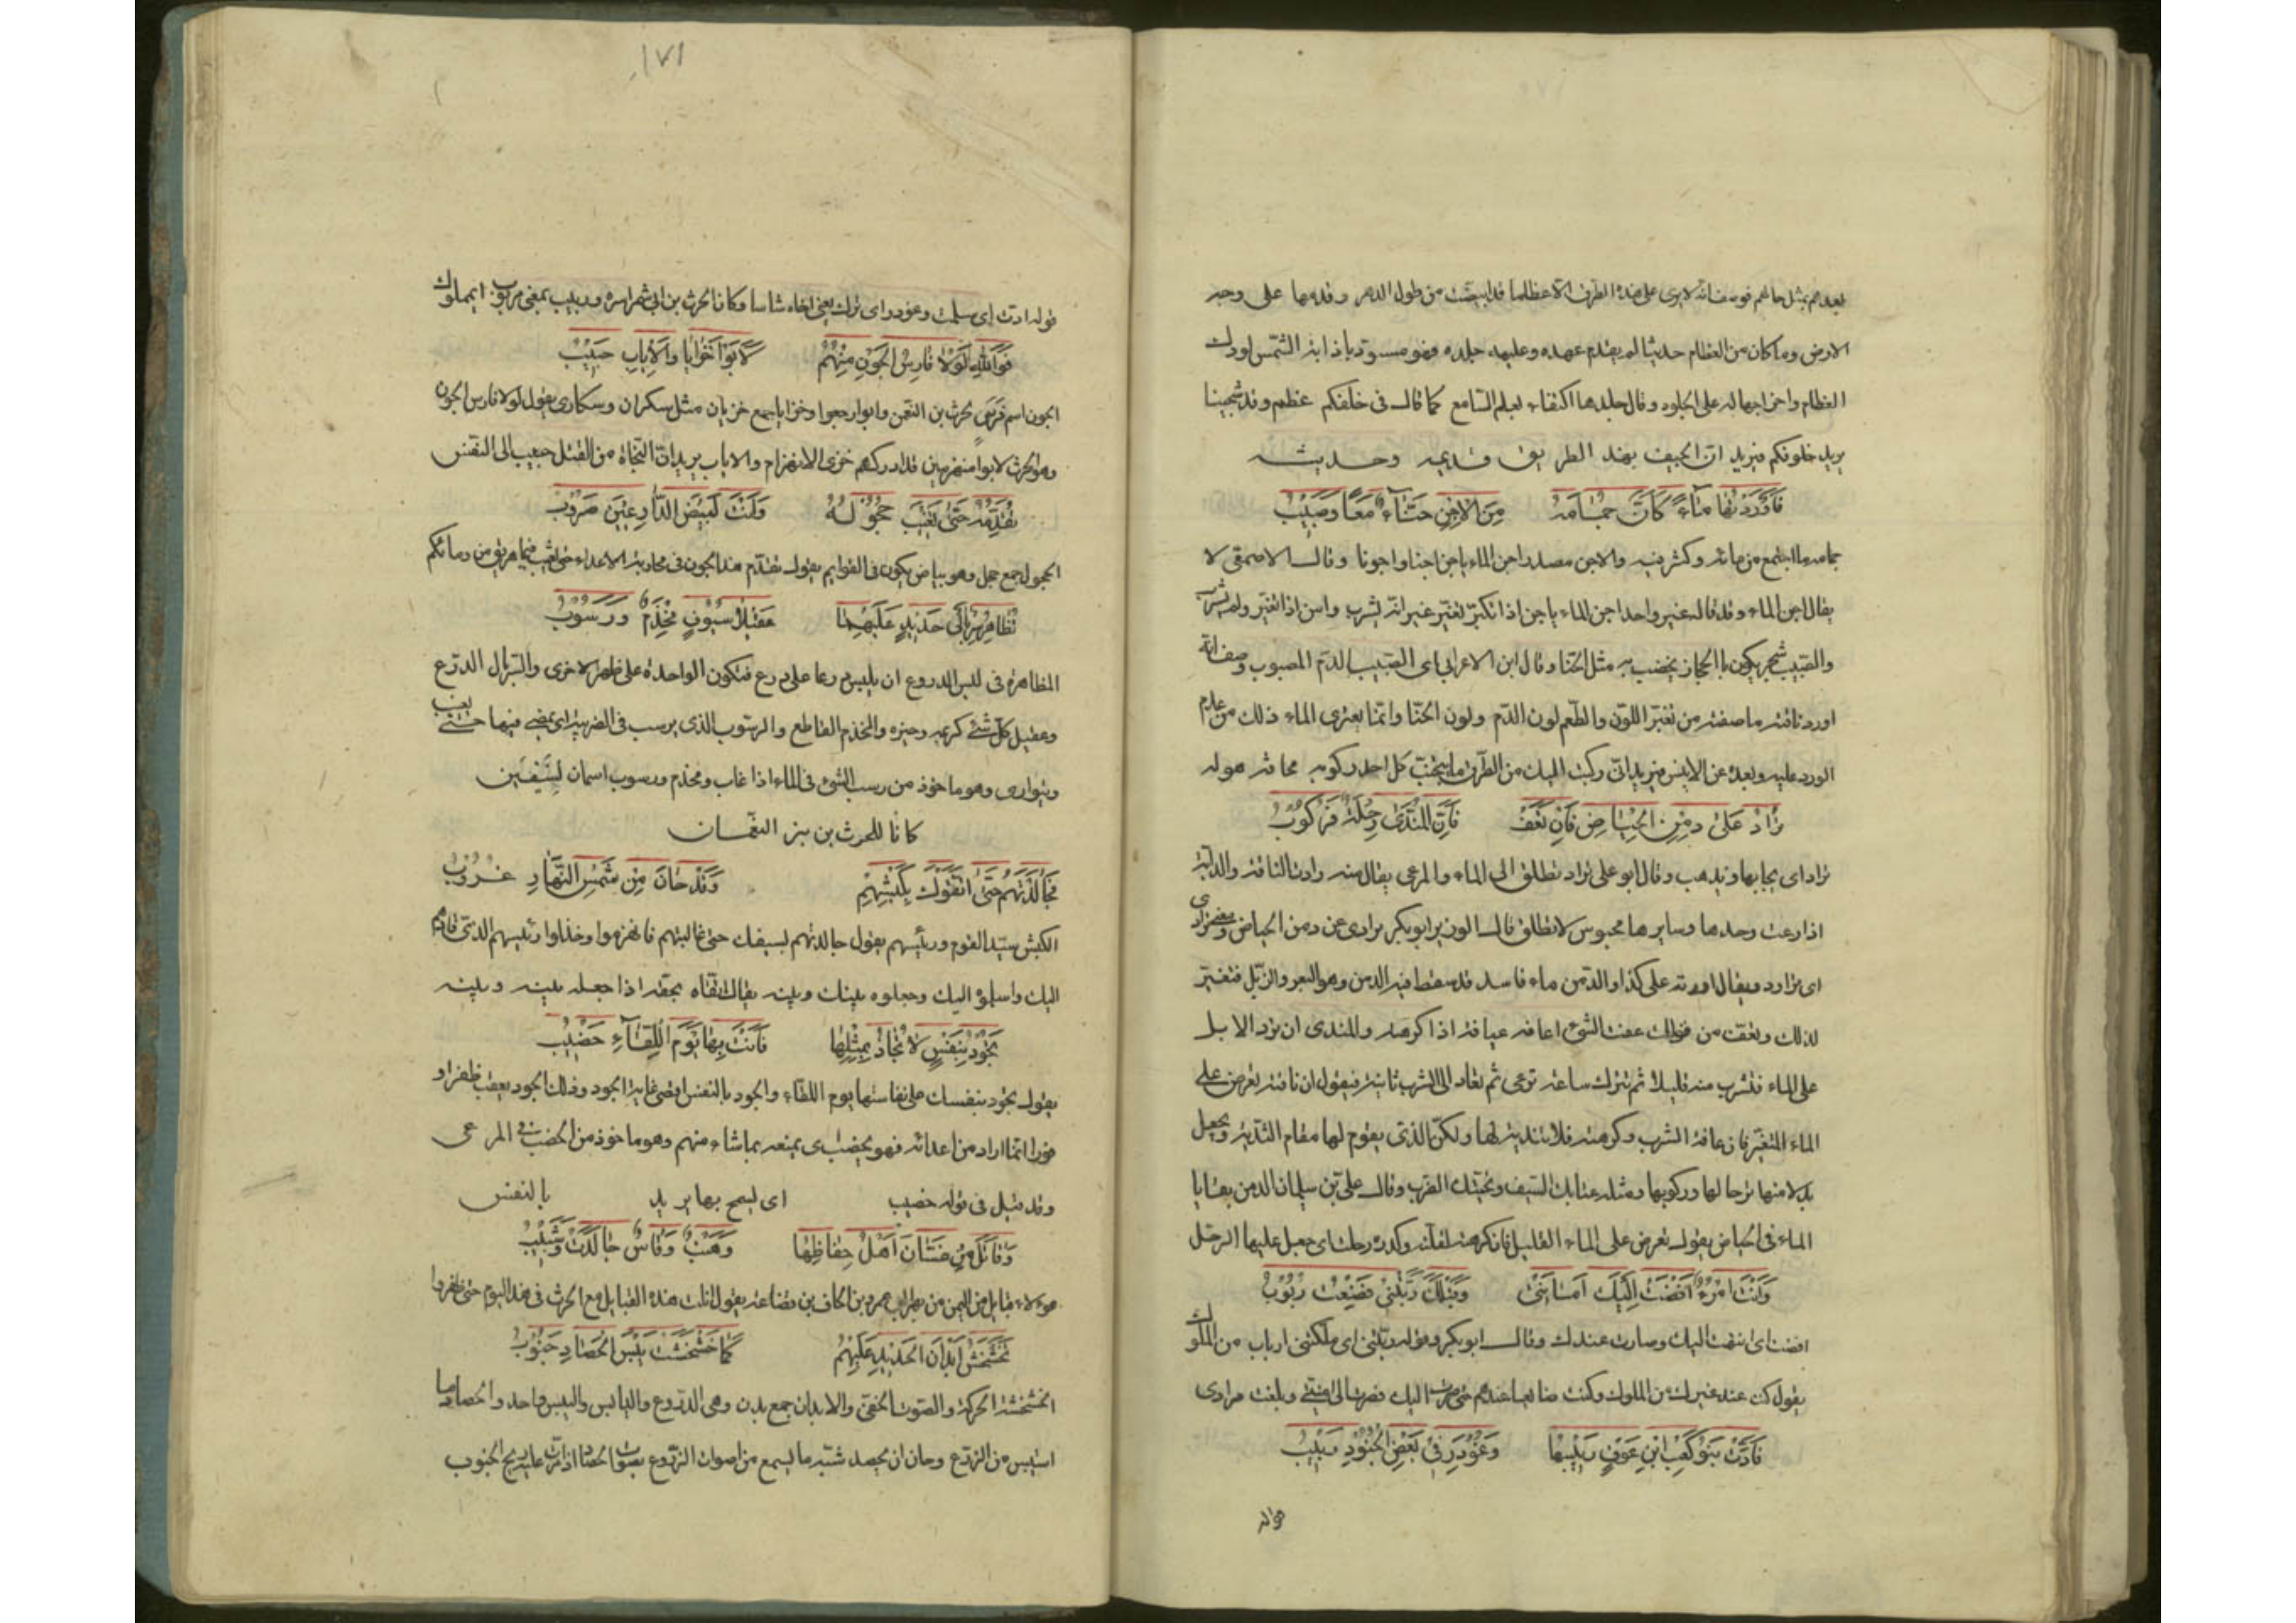 بعدهم بمثل حالهم قوله فانه لا يرى على هذه الطرق الا عظاما قد ابيضت من طول الدهر وقدمها على وجه
الارض وما كان من العظام حديثا لم يتقدم عهده وعليه جلده وهو مسود باذابة الشمس لودك
العظام واخراجها له على الجلود وقال جلدها اكتفاء لعلم السامع كما قال في خلقكم عظم وقد شجينا
يريد حلوقكم فيريد ان الجيف بهذ الطريق قديمه وحديثه
فَاَوْرَدْتُهَا مَاءً كَاَنَّ جِمَامَهُ مِنَ الاَجْنِ حَنَّاءٌ مَعًا وَصَبِيْبُ
جمامه ما اجتمع من مائه وكثر فيه والاجن مصدر اجن الماء ياجن اجنا واجونا وقال الاصمعى لا
يقال اجن الماء وقد قاله غير واحد اجن الماء ياجن اذا تغير غير انه يشرب واسن اذا تغير ولم يشرب
والصبيب شجر يكون با الحجاز يخضب به مثل الحنا وقال ابن الاعرابى اى الصبيب الدم المصبوب وصف انه
اورد ناقته ما صفته من تغير اللون والطعم لون الدم ولون الحنا وانما يعترى الماء ذلك من عدم
الورد عليه وبعده عن الانيس فيريد انى ركبت اليك من الطرق ما يتجنب كل احد ركوبه مخافة هوله
تُرَادُ عَلَى دِمْنِ الْحِيَاضِ فَاِنْ تَعَفْ فَاِنَّ الْمُنَدَّى رِحْلَةٌ فَرُكُوْبُ
تراد اى يجا بها ويذهب وقال ابو على تراد تطلق الى الماء والمرعى يقال منه رادت الناقة والدابة
اذا رعت وحدها وسايرها محبوس لا تطلق قال الوزير ابو بكر يرادى عن دمن الحياض ومعنى ترادى
اى تراود ويقال اردته على كذا والدمن ماء فاسد قد سقط فيه الدمن وهو البعر والزبل فتغير
لذلك وتعف من قولك عفت الشئ اعافه عيافة اذا كرهته والمندى ان ترد الابل
على الماء فتشرب منه قليلا ثم تترك ساعة ترعى ثم تعاد الى الشرب ثانية فيقول ان ناقته تعرض على
الماء المتغير فان عافة الشرب وكرهته فلا تندية لها ولكن الذى يقوم لها مقام التندية ويجعل
بدلا منها ترحالها وركوبها ومثله عتابك السيف وتحيتك الضرب وقال على بن سليمان الدمن بقايا
الماء فى الحياض يقول تعرض على الماء القليل فان كرهته لقلته وكدره رحلت اى جعل عليها الرحل
وَاَنْتَ امْرُءٌ اَفْضَتْ اِلَيْكَ اَمَانَتِىْ وَقَبْلَكَ رَبَّتْنِىْ فَضِعْتُ رُبُوْبُ
افضت اى انتهت اليك وصارت عندك وقال ابو بكر وقوله ربتنى اى ملكتنى ارباب من الملوك
يقول كنت عند غيرك من الملوك وكنت ضائعا عندهم حتى صرت اليك فصرت الى امنيتى وبلغت مرادى
فَادَّتْ بَنُوْ كَعْبِ ابْنِ عَوْفٍ رَبِيْبَهَا وَغُوْدِرَ فِىْ بَعْضِ الْجُنُوْدِ رَبِيْبُ
قوله
١٧١
قوله ادت اى سلمت وغودر اى ترك يعنى اخاه شاسا وكان الحرث بن ابى شمر اسره وربيب بمعنى مربوب اى مملوك
فَوَاللّٰهِ لَوْلَا فَارِسُ الْجَوْنِ مِنْهُمْ لَاٰبَوْا خَزَايَا وَالْاِيَابُ حَبِيْبُ
الجون اسم فرس لحرث بن النعمن وابوا رجعوا وخزايا جمع خزيان مثل سكران وسكارى يقول لولا فارس الجون
وهو الحرث لابوا منهزمين قد ادركهم خزى الانهزام والاياب يريد ان النجاة من القتل حبيب الى النفس
تُقَدِّمُهُ حَتّٰى تَغِيْبَ حُجُوْلُهُ وَاَنْتَ لِبَيْضِ الدَّارِعِيْنَ ضَرُوْبُ
الحجول جمع حجل وهو بياض يكون فى القوايم يقول تقدم هذا الجون فى محاربة الاعداء حتى تغيب فيما هريق من دمائكم
تُظَاهِرُ سِرْبَالَىْ حَدِيْدٍ عَلَيْهِمَا عَقِيْلَا سُيُوْفٍ مِخْذَمٌ وَرَسُوْبُ
المظاهرة فى لبس الدروع ان يلبس درعا على درع فتكون الواحدة على ظهر الاخرى والسربال الدرع
وعقيل كل شئ كريمه وخيره والمخذم القاطع والرسوب الذى يرسب فى الضريبة اى يمضى فيها حتى يغيب
ويتوارى وهو ماخوذ من رسب الشئ فى الماء اذا غاب ومخذم ورسوب اسمان لسيفين
كانا للحرث بن النعمان
فَجَالَدْتَهُمْ حَتّٰى اتَّقَوْكَ بِكَبْشِهِمْ وَقَدْ حَانَ مِنْ شَمْسِ النَّهَارِ غُرُوْبُ
الكبش سيد القوم ورئيسهم يقول جالدتهم بسيفك حتى غالبتهم فانهزموا وخذلوا رئيسهم الذى قادهم
اليك واسلموه اليك وجعلوه بينك وبينه يقال اتقاه بحقه اذا جعله بينه وبينه
تَجُوْدُ بِنَفْسٍ لَا يُجَادُ بِمِثْلِهَا فَاَنْتَ بِهَا يَوْمَ اللِّقَاءِ خَصِيْبُ
يقول تجود بنفسك على نفاستها يوم اللقاء والجود بالنفس اقصى غاية الجود وذلك الجود يعقب ظفرا و
فوزا انما اراد من اعدائه فهو بخصب اى يمتعه بما شاء منهم وهو ماخوذ من الخصب فى المرعى
وقد قيل فى قوله خصيب اى يسمح بها يريد بالنفس
وَقَاتَلَ مِنْ غَسَّانَ اَهْلُ حِفَاظِهَا وَهِنْبٌ وَقَاسٌ جَالَدَتْ وَشَبِيْبُ
هولاء قبايل من اليمن من بهراء بن عمرو بن الحاف بن قضاعة يقول قاتلت هذه القبايل مع الحرث فى هذا اليوم حتى ظفروا
تَخَشْخَشُ اَبْدَانُ الْحَدِيْدِ عَلَيْهِمْ كَمَا خَشْخَشَتْ يَبْسَ الْحَصَادِ جَنُوْبُ
الخشخشة الحركة والصوت الخفى والابدان جمع بدن وهى الدروع واليابس واليبس واحد والحصاد ما
استيبس من الزرع وحان ان يحصد شبه ما يسمع من اصوات الدروع بصوت الحصاد اذا مرت عليه ريح الجنوب